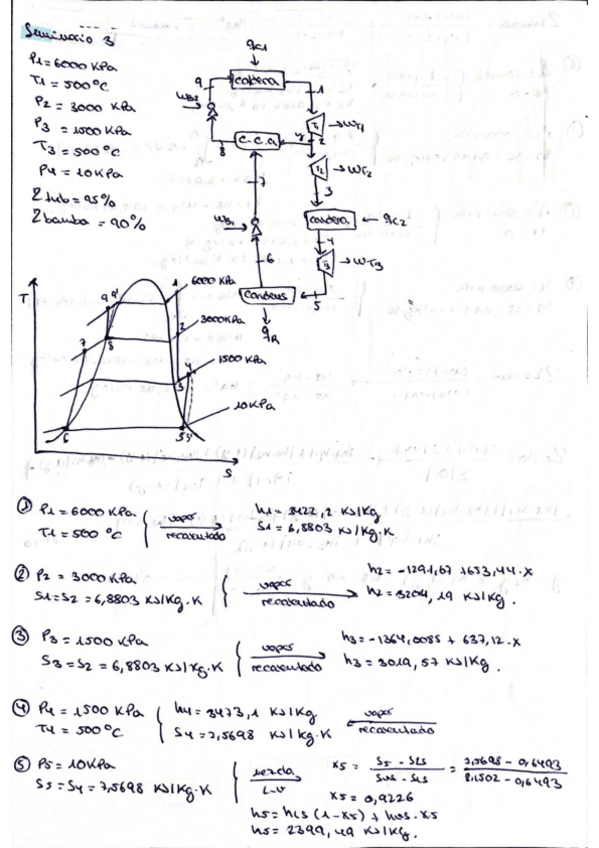 Seminario 3
P1 = 6000 KPa
T1 = 500 °C
P2 = 3000 KPa
P3 = 1500 KPa
T3 = 500 °C
P4 = 10 KPa
η tub = 95%
η bomba = 90%
qC1
caldera
9
1
WB2
T1
→ WT1
2
C.C.A
8
T2
→ WT2
7
3
caldera
← qC2
WB1
4
T3
→ WT3
6
5
condens
qR
T
6000 KPa
3000 KPa
1500 KPa
10 KPa
9 9'
1
2
7
8
3
4
6
5 5'
S
① P1 = 6000 KPa
T1 = 500 °C
vapor
recalentado
h1 = 3422,2 KJ/Kg
S1 = 6,8803 KJ/Kg.K
② P2 = 3000 KPa
S1 = S2 = 6,8803 KJ/Kg.K
vapor
recalentado
h2 = -1291,67 + 653,44.x
h2 = 3204,19 KJ/Kg.
③ P3 = 1500 KPa
S3 = S2 = 6,8803 KJ/Kg.K
vapor
recalentado
h3 = -1364,0085 + 637,12.x
h3 = 3019,57 KJ/Kg.
④ P4 = 1500 KPa
T4 = 500 °C
h4 = 3473,1 KJ/Kg
S4 = 7,5698 KJ/Kg.K
vapor
recalentado
⑤ P5 = 10 KPa
S5 = S4 = 7,5698 KJ/Kg.K
mezcla
L-V
x5 = S5 - SLS / SVS - SLS = 7,5698 - 0,6493 / 8,1502 - 0,6493
x5 = 0,9226
h5 = hLS (1 - x5) + hVS . x5
h5 = 2399,49 KJ/Kg.